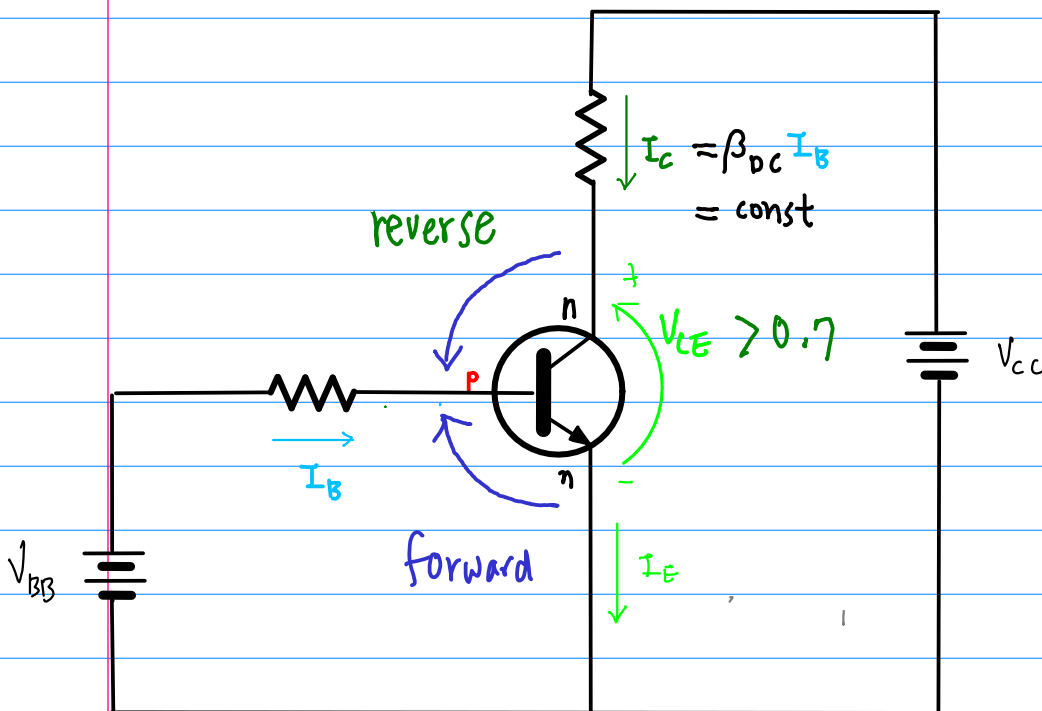 I_C = β_DC I_B
= const
reverse
+
n
V_CE > 0.7
V_CC
P
I_B
n
−
forward
I_E
V_BB